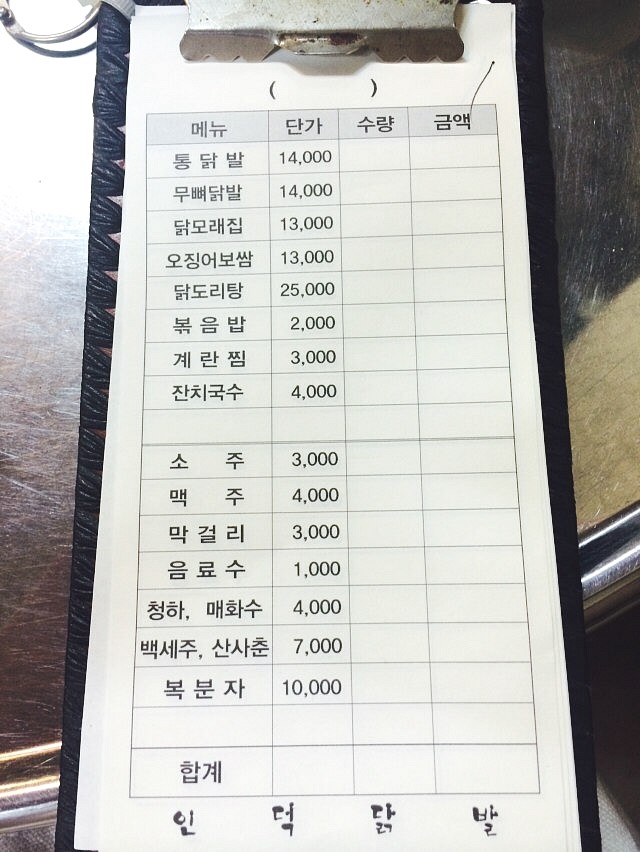 ( )
메뉴 단가 수량 금액
통 닭 발 14,000
무뼈닭발 14,000
닭모래집 13,000
오징어보쌈 13,000
닭도리탕 25,000
볶 음 밥 2,000
계 란 찜 3,000
잔치국수 4,000
소 주 3,000
맥 주 4,000
막 걸 리 3,000
음 료 수 1,000
청하, 매화수 4,000
백세주, 산사춘 7,000
복 분 자 10,000
합계
인 덕 닭 발